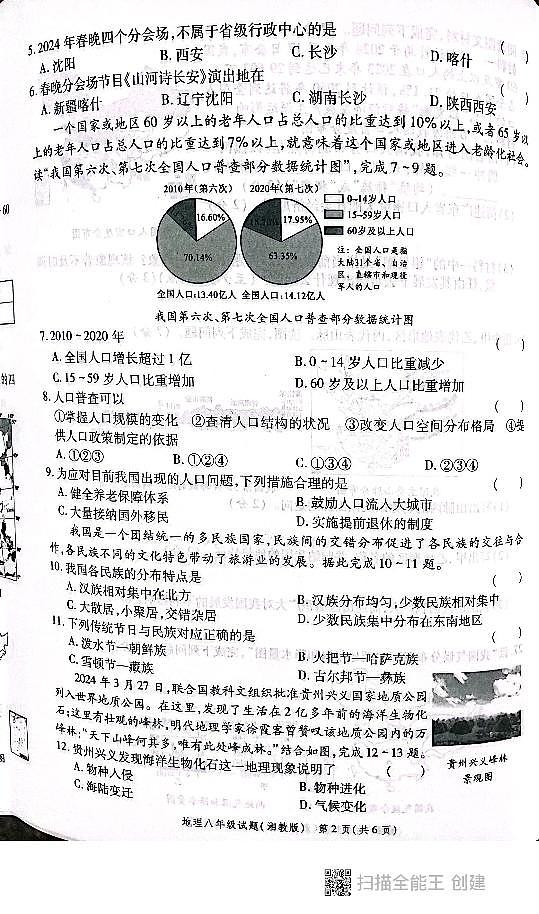 5.2024年春晚四个分会场,不属于省级行政中心的是 ( )
A.沈阳 B.西安 C.长沙 D.喀什
6.春晚分会场节目《山河诗长安》演出地在 ( )
A.新疆喀什 B.辽宁沈阳 C.湖南长沙 D.陕西西安
一个国家或地区60岁以上的老年人口占总人口的比重达到10%以上,或者65岁以
上的老年人口占总人口的比重达到7%以上,就意味着这个国家或地区进入老龄化社会。
读“我国第六次、第七次全国人口普查部分数据统计图”,完成7~9题。
2010年(第六次) 2020年(第七次)
16.60%
70.14%
17.95%
63.35%
0~14岁人口
15~59岁人口
60岁及以上人口
注:全国人口是指
大陆31个省、自治
区、直辖市和现役
军人的人口
全国人口:13.40亿人 全国人口:14.12亿人
我国第六次、第七次全国人口普查部分数据统计图
7.2010~2020年 ( )
A.全国人口增长超过1亿 B.0~14岁人口比重减少
C.15~59岁人口比重增加 D.60岁及以上人口比重增加
8.人口普查可以 ( )
①掌握人口规模的变化 ②查清人口结构的状况 ③改变人口空间分布格局 ④提
供人口政策制定的依据
A.①②③ B.①②④ C.①③④ D.②③④
9.为应对目前我国出现的人口问题,下列措施合理的是 ( )
A.健全养老保障体系 B.鼓励人口流入大城市
C.大量接纳国外移民 D.实施提前退休的制度
我国是一个团结统一的多民族国家,民族间的交错分布促进了各民族的交往与合
作,各民族不同的文化特色带动了旅游业的发展。据此完成10~11题。
10.我国各民族的分布特点是 ( )
A.汉族相对集中在北方 B.汉族分布均匀,少数民族相对集中
C.大散居,小聚居,交错杂居 D.少数民族集中分布在东南地区
11.下列传统节日与民族对应正确的是 ( )
A.泼水节—朝鲜族 B.火把节—哈萨克族
C.雪顿节—藏族 D.古尔邦节—彝族
2024年3月27日,联合国教科文组织批准贵州兴义国家地质公园
列入世界地质公园。在这里,发现了生活在2亿多年前的海洋生物化
石;这里有壮观的峰林,明代地理学家徐霞客曾赞叹该地质公园内的万
峰林:“天下山峰何其多,唯有此处峰成林。”结合如图,完成12~13题。
贵州兴义峰林
景观图
12.贵州兴义发现海洋生物化石这一地理现象说明了 ( )
A.物种入侵 B.物种进化
C.海陆变迁 D.气候变化
地理八年级试题(湘教版) 第2页(共6页)
扫描全能王 创建